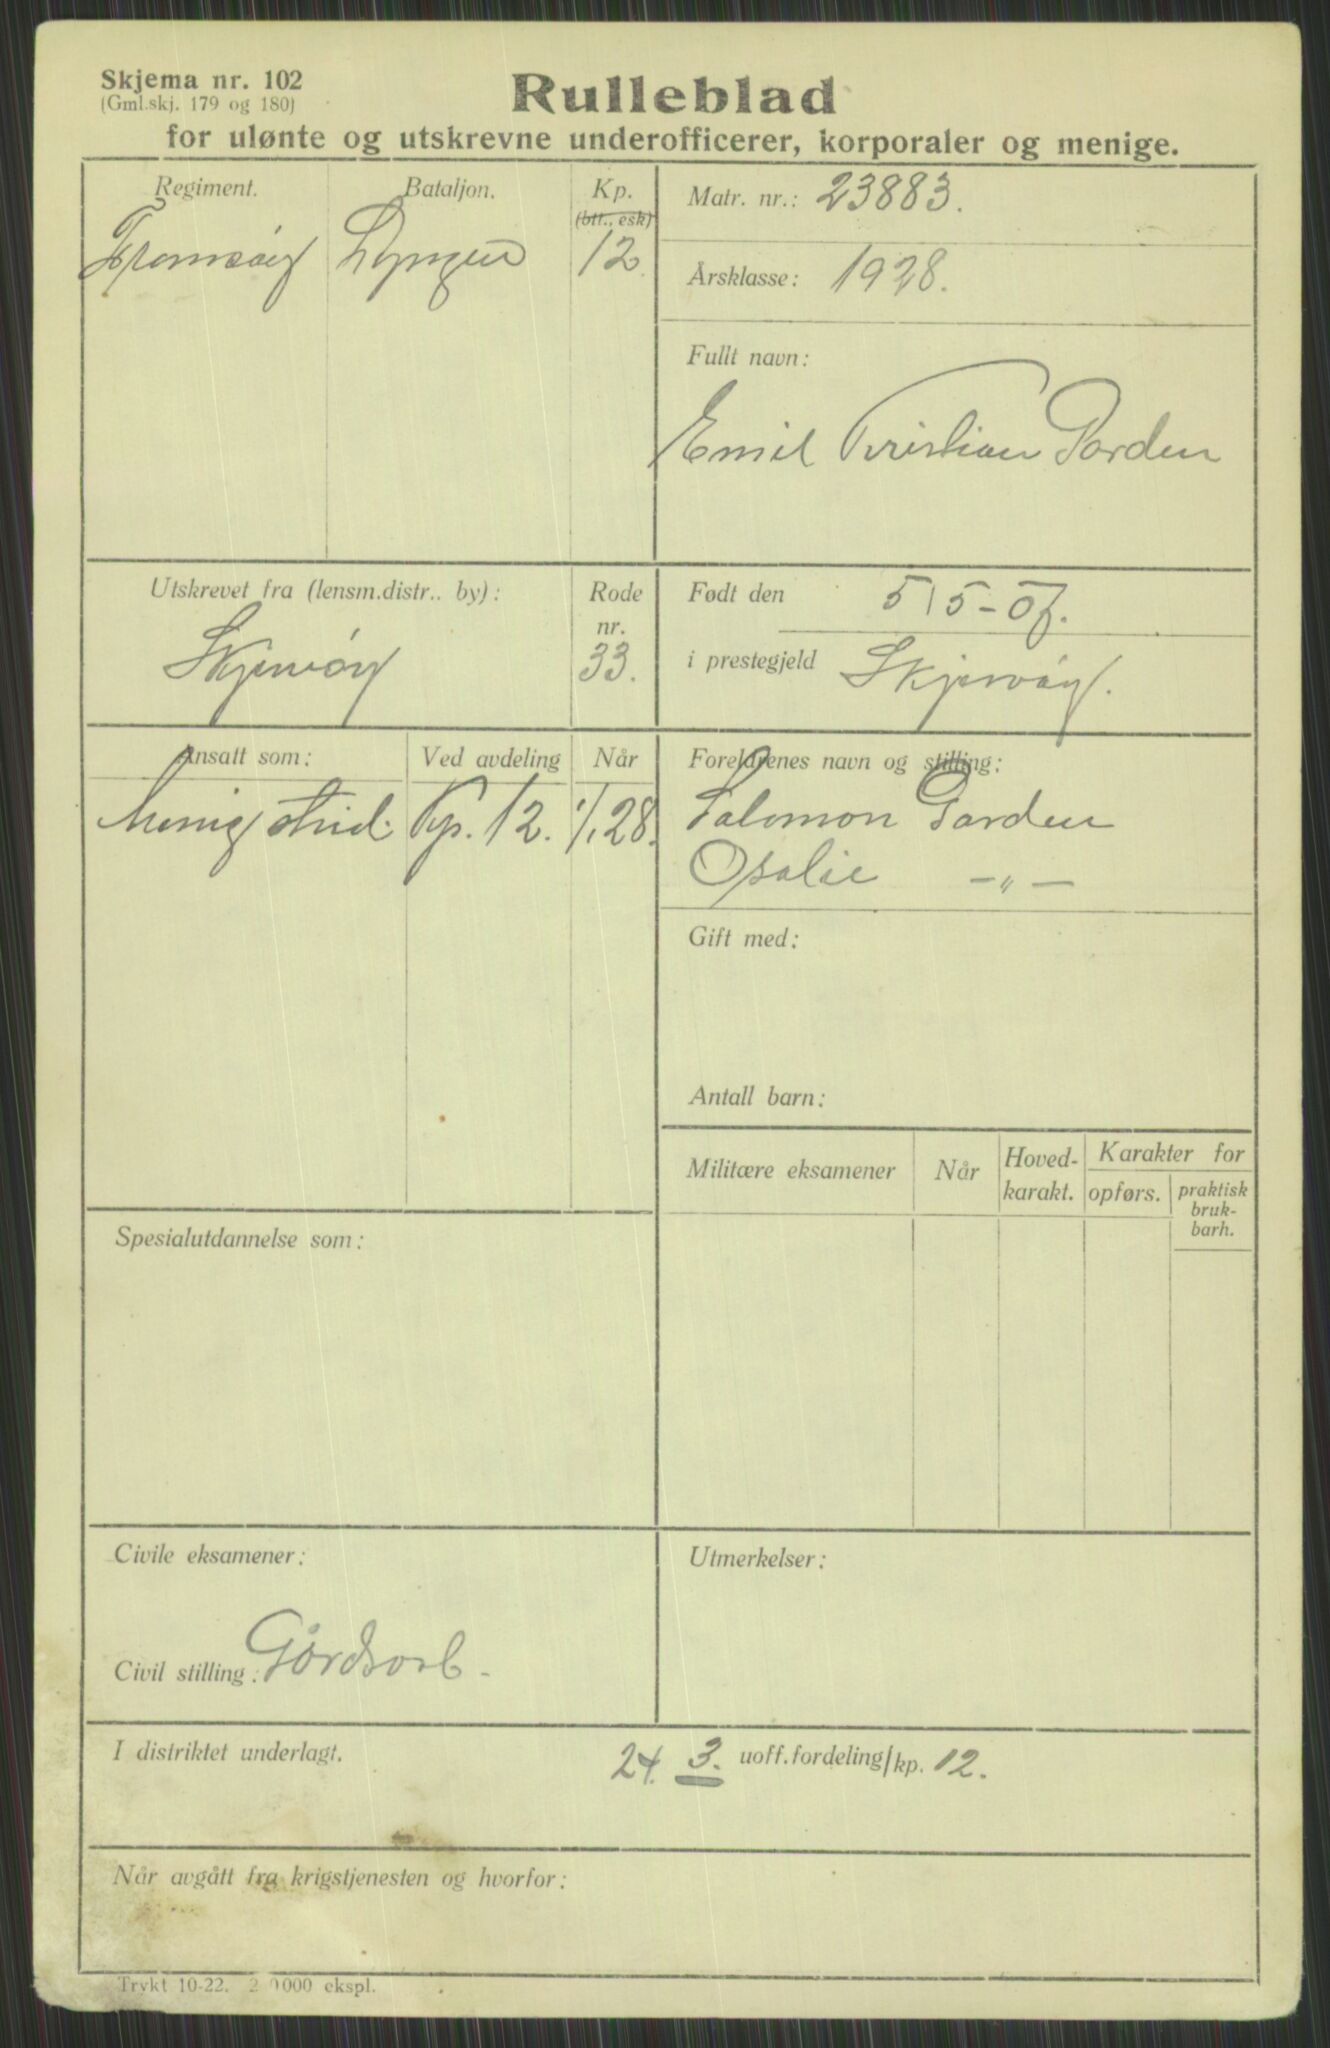 Skjema nr. 102
(Gml.skj. 179 og 180)
Rulleblad
for ulønte og utskrevne underofficerer, korporaler og menige.
Regiment. Bataljon. Kp. (btt., esk)
Tromsöy Lyngen 12.
Matr. nr.: 23883.
Årsklasse: 1928.
Fullt navn:
Emil Kristian Garden
Utskrevet fra (lensm.distr.. by): Rode nr.
Skjervöy 33.
Født den 5/5-07.
i prestegjeld Skjervöy.
Ansatt som: Ved avdeling Når
Menig Kp. 12. 1/1 28.
Foreldrenes navn og stilling:
Salomon Garden
Osalie -"-
Gift med:
Antall barn:
Militære eksamener Når Hoved-karakt. Karakter for
opførs. praktisk bruk-barh.
Spesialutdannelse som:
Civile eksamener:
Civil stilling: Gårdsarb.
Utmerkelser:
I distriktet underlagt. 24. 3. uoff.fordeling/kp. 12.
Når avgått fra krigstjenesten og hvorfor:
Trykt 10-22. 2 0000 ekspl.